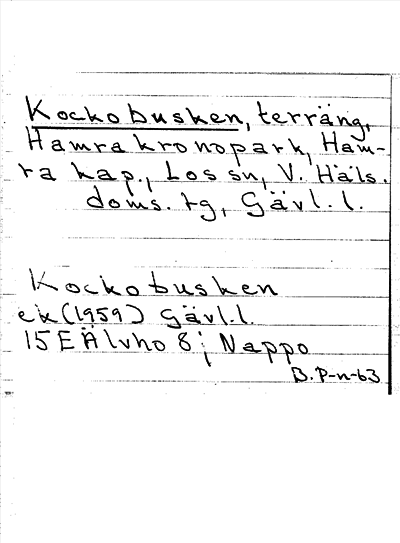 Kockobusken, terräng,
Hamra kronopark, Ham-
ra kap., Los sn, V. Häls.
doms. tg, Gävl. l.
Kockobusken
ek (1959) Gävl. l.
15E Älvho 8 i; Nappo
B. P-n-63